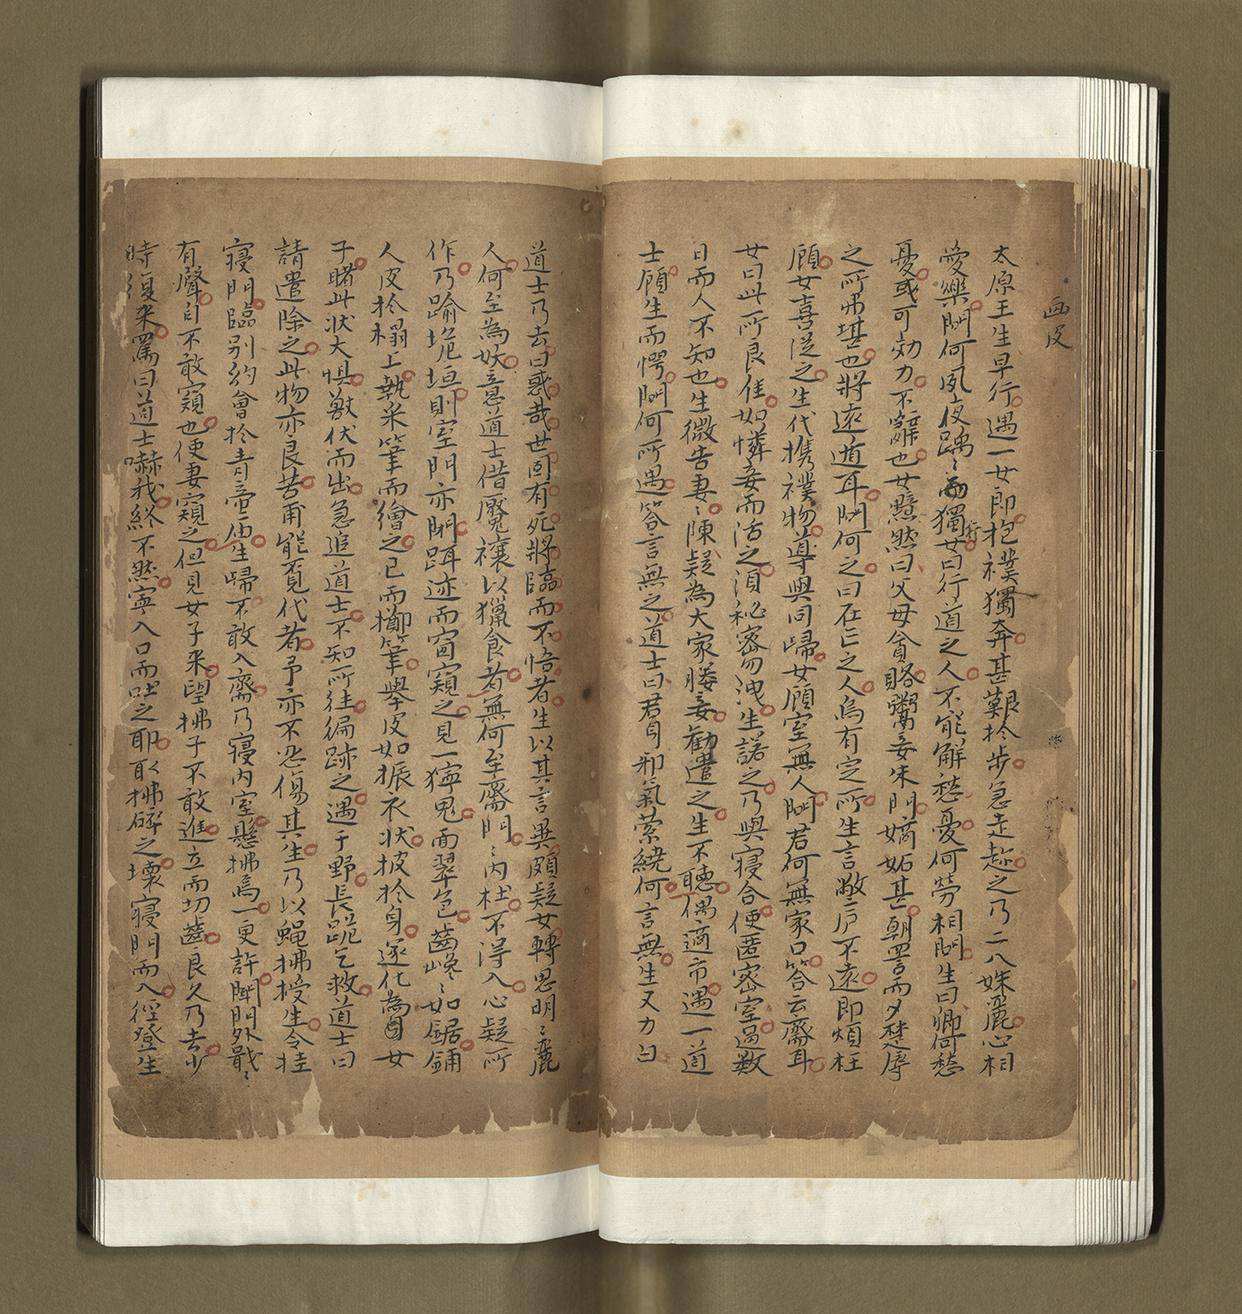 画皮
太原王生早行遇一女郎抱襆獨奔甚艱扵步急走趂之乃二八姝麗心相
愛樂問何夙夜踽〻獨行女曰行道之人不能解愁憂何勞相問生曰卿何愁
憂或可効力不辭也女黯然曰父母貪賂鬻妾朱門嫡妬甚朝詈而夕楚辱
之所弗堪也將遠遁耳問何之曰在亡之人烏有定所生言敝庐不遠即煩枉
顧女喜從之生代携襆物導與同歸女顧室無人問君何無家口答云齋耳
女曰此所良佳如憐妾而活之須祕密勿洩生諾之乃與寢合使匿密室過數
日而人不知也生微告妻〻陳疑為大家媵妾勸遣之生不聽偶適市遇一道
士顧生而愕問何所遇答言無之道士曰君身邪氣縈繞何言無生又力白
道士乃去曰惑哉世固有死將臨而不悟者生以其言異頗疑女轉思明〻麗
人何至為妖意道士借魘禳以獵食者無何至齋門〻内杜不得入心疑所
作乃踰垝垣則室門亦閉躡迹而窗窺之見一獰鬼面翠色齒巉〻如鋸鋪
人皮扵榻上執采筆而繪之已而擲筆舉皮如振衣状披扵身遂化為女
子睹此状大懼獸伏而出急追道士不知所往徧跡之遇于野長跪乞救道士曰
請遣除之此物亦良苦甫能覓代者予亦不忍傷其生乃以蝇拂授生令挂
寢門臨别約會扵青帝庙生歸不敢入齋乃寢内室懸拂焉一更許聞門外戢〻
有聲自不敢窺也使妻窺之但見女子来望拂子不敢進立而切齒良久乃去少
時復来罵曰道士嚇我終不然寧入口而吐之耶取拂碎之壞寢門而入徑登生